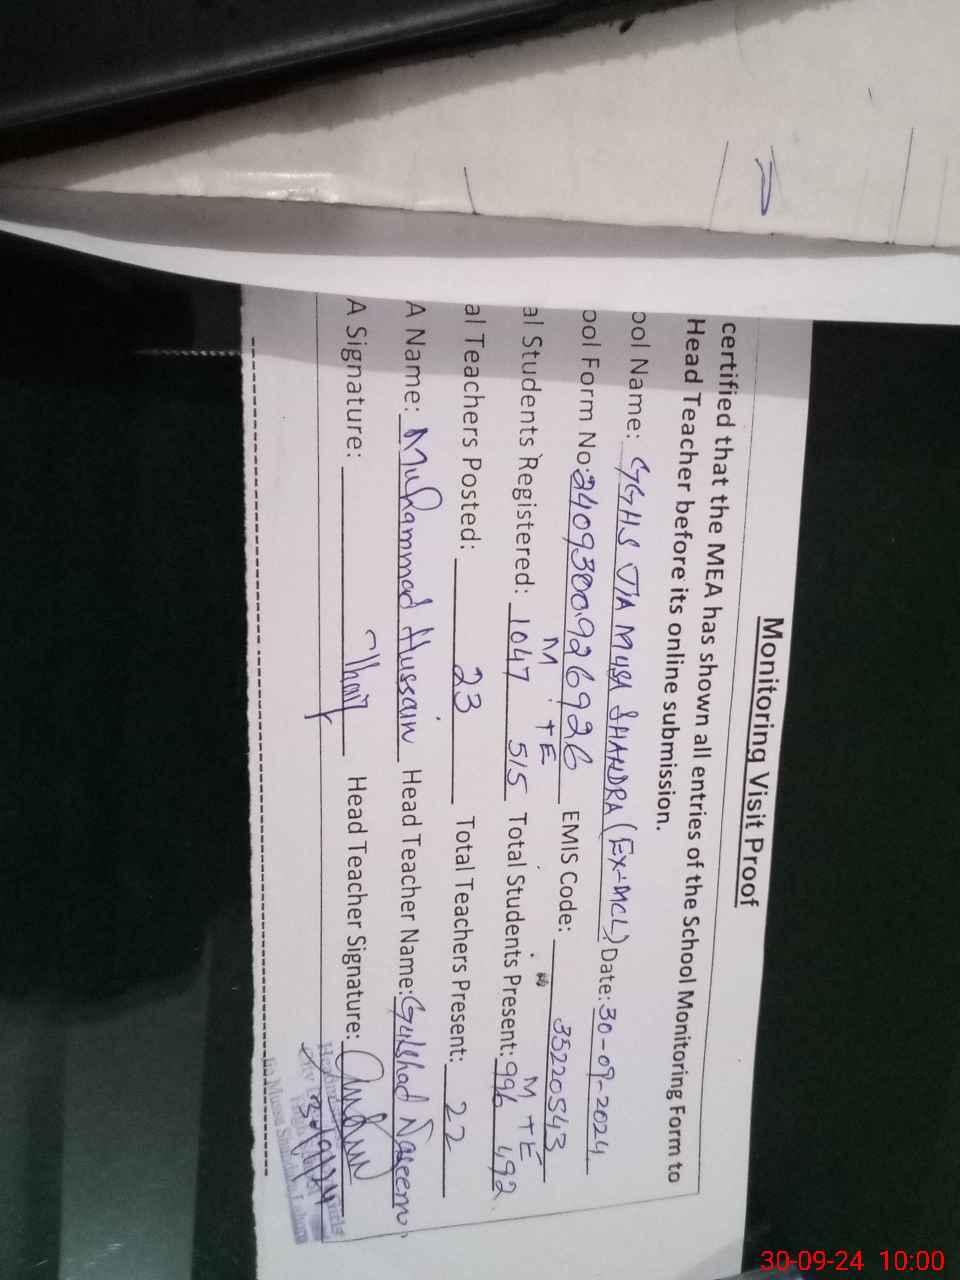 Monitoring Visit Proof
certified that the MEA has shown all entries of the School Monitoring Form to
Head Teacher before its online submission.
ool Name: GGHS JIA MUSA SHAHDRA (EX-MCL) Date: 30-09-2024
ool Form No: 2409300926926 EMIS Code: 35220543
M TE M TE
al Students Registered: 1047 515 Total Students Present: 996 492
al Teachers Posted: 23 Total Teachers Present: 22
A Name: Muhammad Hussain Head Teacher Name: Gulshad Naseem
A Signature: Head Teacher Signature:
30-09-24 10:00